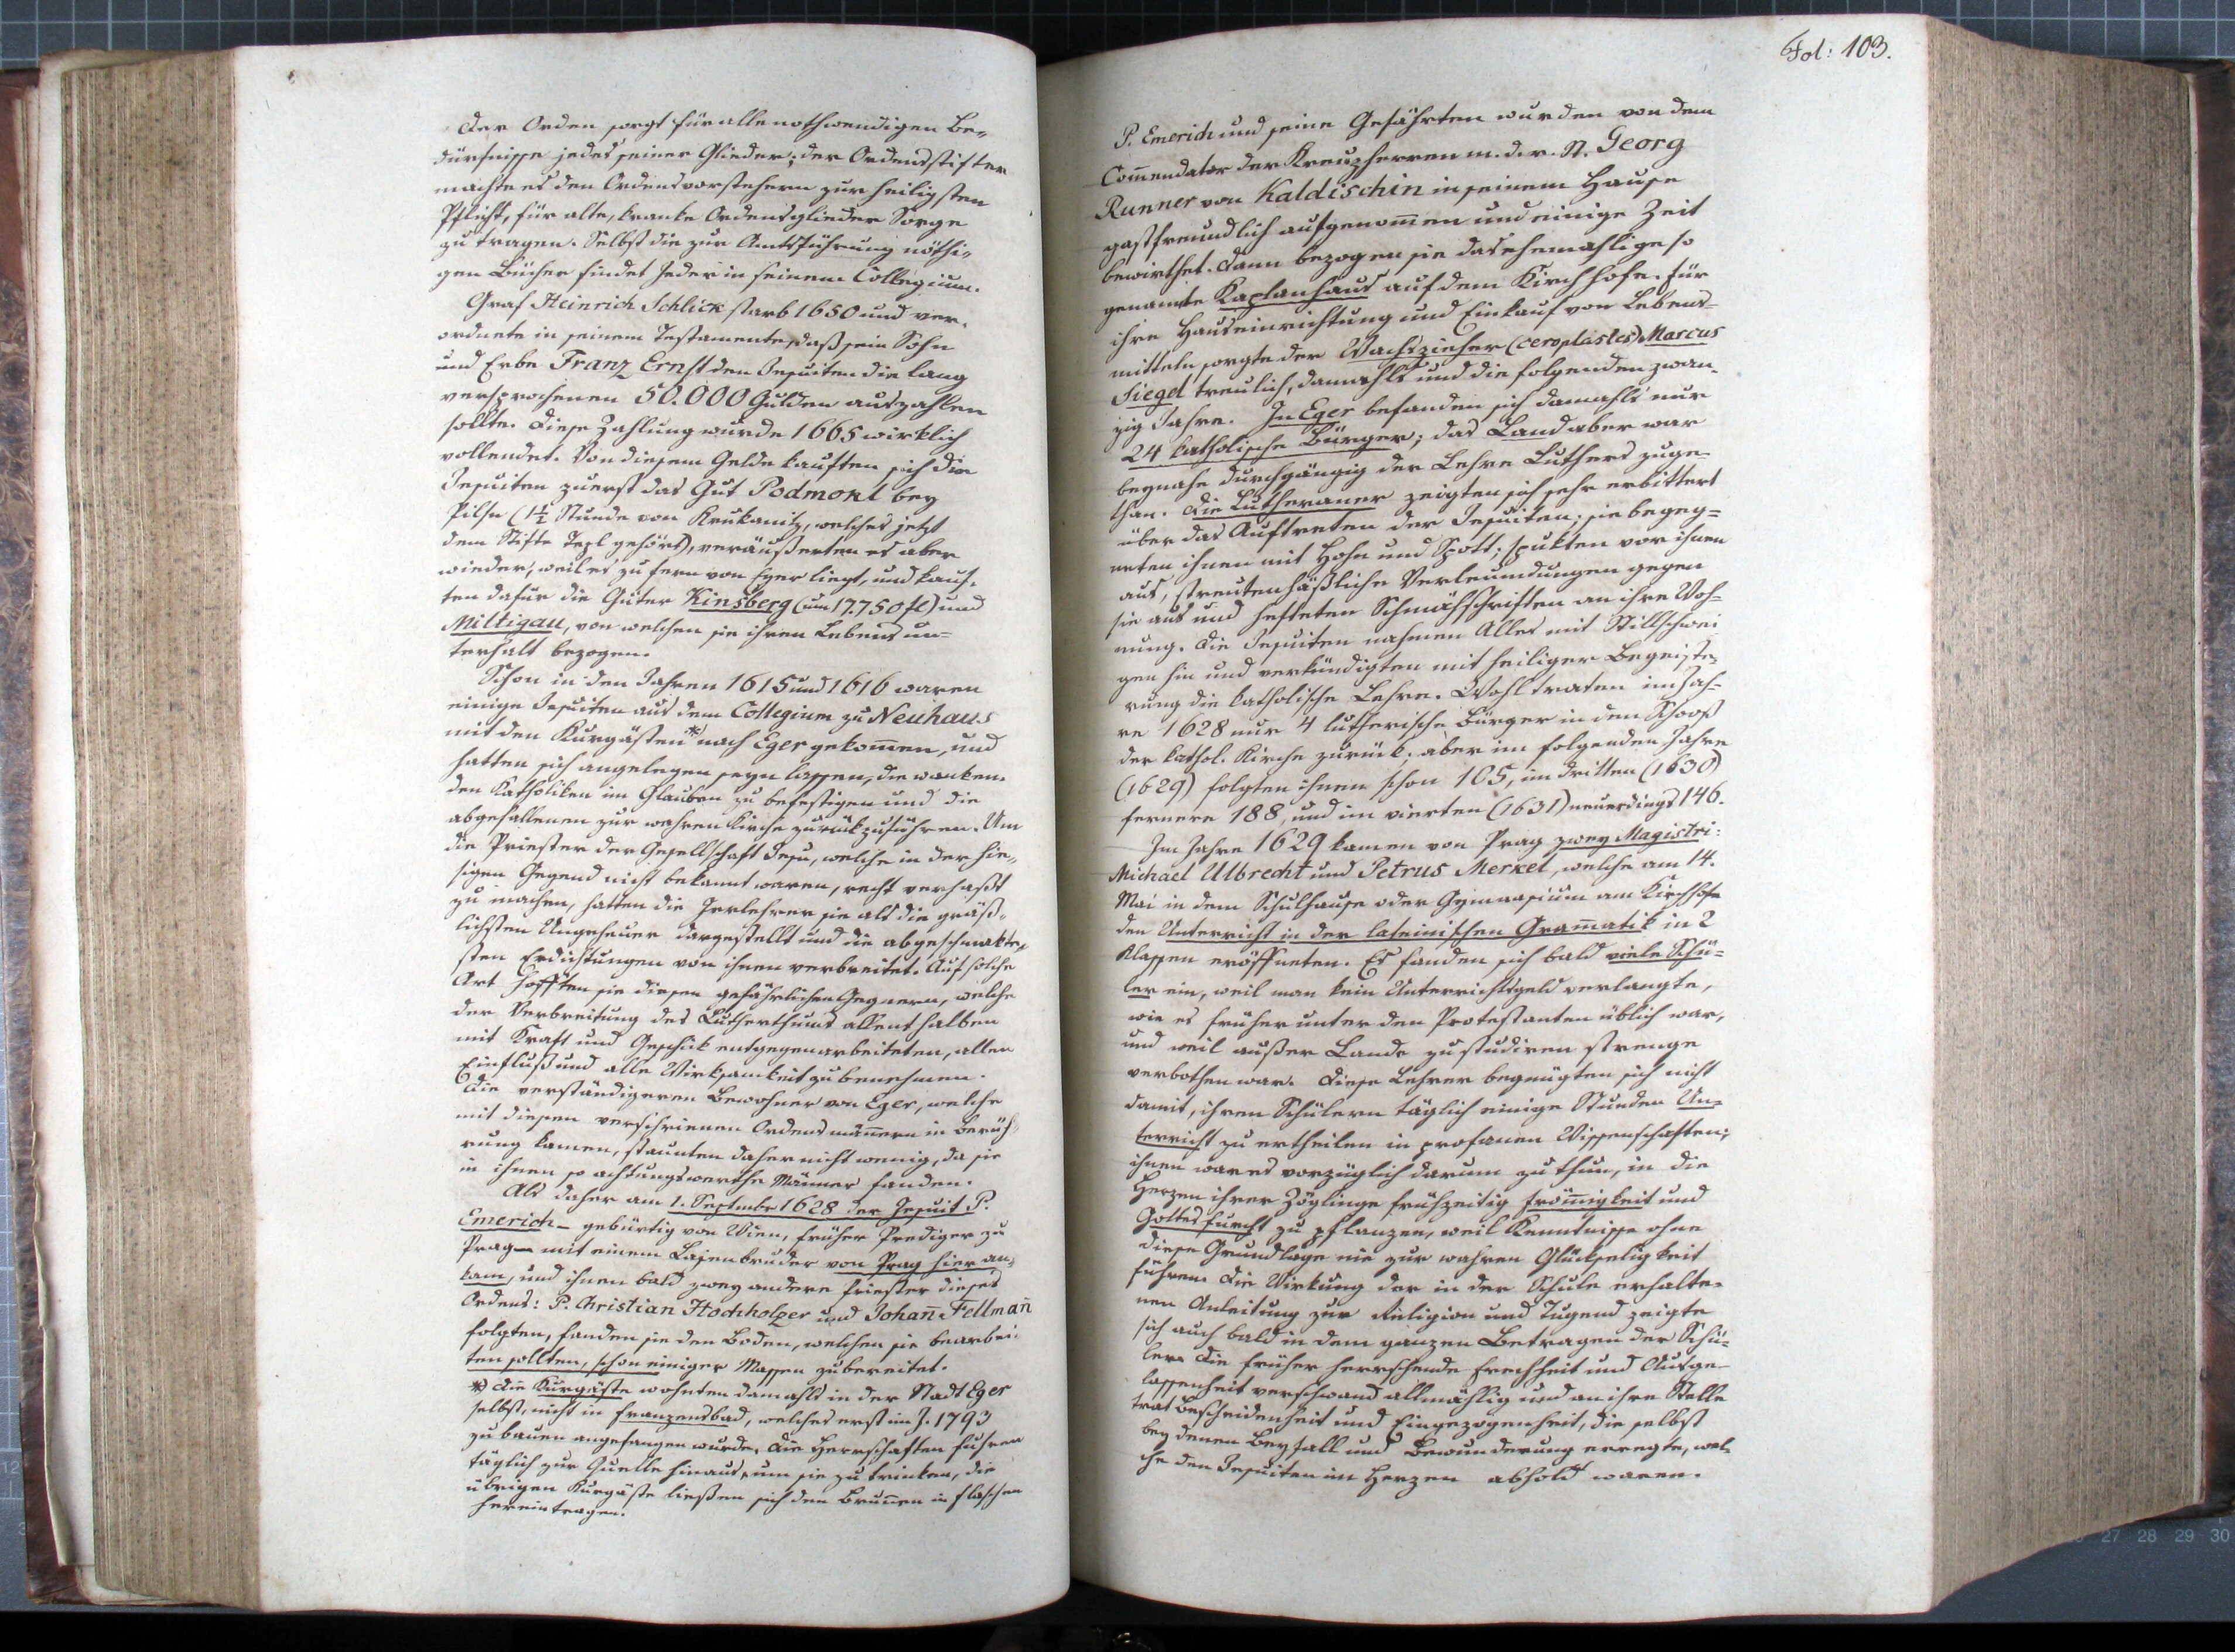 Der Orden sorgt für alle nothwendigen Be-
dürfnisse jedes seiner Glieder; der Ordensstifter
machte es den Ordensvorstehern zur heiligsten
Pflicht, für alte, kranke Ordensglieder Sorge
zu tragen. Selbst die zur Amtsführung nöthi-
gen Bücher findet Jeder in seinem Collegium.
Graf Heinrich Schlick starb 1650 und ver-
ordnete in seinem Testamente, daß sein Sohn
und Erbe Franz Ernst den Jesuiten die lang
versprochenen 50.000 Gulden auszahlen
sollte. Diese Zahlung wurde 1665 wirklich
vollendet. Von diesem Gelde kauften sich die
Jesuiten zuerst das Gut Podmokl bey
Pilsn (1½ Stunde von Krukanitz, welches jetzt
dem Stifte Tepl gehört), veräußerten es aber
wieder, weil es zu fern von Eger liegt, und kauf-
ten dafür die Güter Kinsberg (um 17.750 fl) und
Miltigau, von welchen sie ihren Lebens un-
terhalt bezogen.
Schon in den Jahren 1615 und 1616 waren
einige Jesuiten aus dem Collegium zu Neuhaus
mit den Kurgästen * nach Eger gekom̄en, und
hatten sich angelegen seyn lassen, die wanken-
den Katholiken im Glauben zu befestigen und die
abgefallenen zur wahren Kirche zurückzuführen. Um
die Priester der Gesellschaft Jesu, welche in der hie-
sigen Gegend nicht bekannt waren, recht verhaßt
zu machen, hatten die Irrlehrer sie als die gräß-
lichsten Ungeheuer dargestellt und die abgeschmakte-
sten Erdichtungen von ihnen verbreitet. Auf solche
Art hofften sie diesen gefährlichen Gegnern, welche
der Verbreitung des Lutherthums allenthalben
mit Kraft und Geschick entgegenarbeiteten, allen
Einfluß und alle Wirksamkeit zu benehmen.
Die verständigeren Bewohner von Eger, welche
mit diesen verschrienen Ordensmän̄ern in Berüh-
rung kamen, staunten daher nicht wenig, da sie
in ihnen so achtungswerthe Männer fanden.
Als daher am 1. Septembr 1628 der Jesuit P.
Emerich – gebürtig von Wien, früher Prediger zu
Prag – mit einem Laienbruder von Prag hier an-
kam, und ihnen bald zwey andere Priester dieses
Ordens: P. Christian Hochholzer und Johan̄ Fellman̄
folgten, fanden sie den Boden, welchen sie bearbei-
ten sollten, schon einiger Massen zubereitet.
*) Die Kurgäste wohnten damahls in der Stadt Eger
selbst, nicht in Franzensbad, welches erst im J. 1793
zu bauen angefangen wurde. Die Herrschaften fuhren
täglich zur Quelle hinaus, um sie zu trinken, die
übrigen Kurgäste ließen sich den Brun̄en in Flaschen
hereintragen.
Fol: 103.
P. Emerich und seine Gefährten wurden von dem
Com̄endator der Kreuzherren m. d. r. St. Georg
Runner von Kaldischin in seinem Hause
gastfreundlich aufgenom̄en und einige Zeit
bewirthet. Dann bezogen sie das ehemahlige so
genannte Kaplanhaus auf dem Kirchhofe. Für
ihre Hauseinrichtung und Einkauf von Lebens-
mitteln sorgte der Wachszieher (ceroplastes) Marcus
Siegel treulich, damahls und die folgenden zwan-
zig Jahre. In Eger befanden sich damahls nur
24 katholische Bürger; das Land aber war
beynahe durchgängig der Lehre Luthers zuge-
than. Die Lutheraner zeigten sich sehr erbittert
über das Auftreten der Jesuiten; sie begeg-
neten ihnen mit Hohn und Spott; spukten vor ihnen
aus, streuten häßliche Verleumdungen gegen
sie aus und hefteten Schmähschriften an ihre Woh-
nung. Die Jesuiten nahmen Alles mit Stillschwei
gen hin und verkündigten mit heiliger Begeiste-
rung die katholische Lehre. Wohl traten im Jah-
re 1628 nur 4 lutherische Bürger in den Schooß
der kathol. Kirche zurück; aber im folgenden Jahre
(1629) folgten ihnen schon 105, im dritten (1630)
fernere 188, und im vierten (1631) neuerdings 146.
Im Jahre 1629 kamen von Prag zwey Magistri:
Michael Ulbrecht und Petrus Merkel, welche am 14.
Mai in dem Schulhause oder Gymnasium am Kirchhofe
den Unterricht in der lateinischen Gram̄atik in 2
Klassen eröffneten. Es fanden sich bald viele Schü-
ler ein, weil man kein Unterrichtsgeld verlangte,
wie es früher unter den Protestanten üblich war,
und weil außer Lande zu studiren strenge
verbothen war. Diese Lehrer begnügten sich nicht
damit, ihren Schülern täglich einige Stunden Un-
terricht zu ertheilen in profanen Wissenschaften;
ihnen war es vorzüglich darum zu thun, in die
Herzen ihrer Zöglinge frühzeitig Fröm̄igkeit und
Gottesfurcht zu pflanzen, weil Kenntnisse ohne
diese Grundlage nie zur wahren Glückseligkeit
führen. Die Wirkung der in der Schule erhalte-
nen Anleitung zur Religion und Tugend zeigte
sich auch bald in dem ganzen Betragen der Schü-
ler. Die früher herrschende Frechheit und Ausge-
lassenheit verschwand allmählig und an ihre Stelle
trat Bescheidenheit und Eingezogenheit, die selbst
bey denen Beyfall und Bewunderung erregte, wel-
che den Jesuiten im Herzen abhold waren.